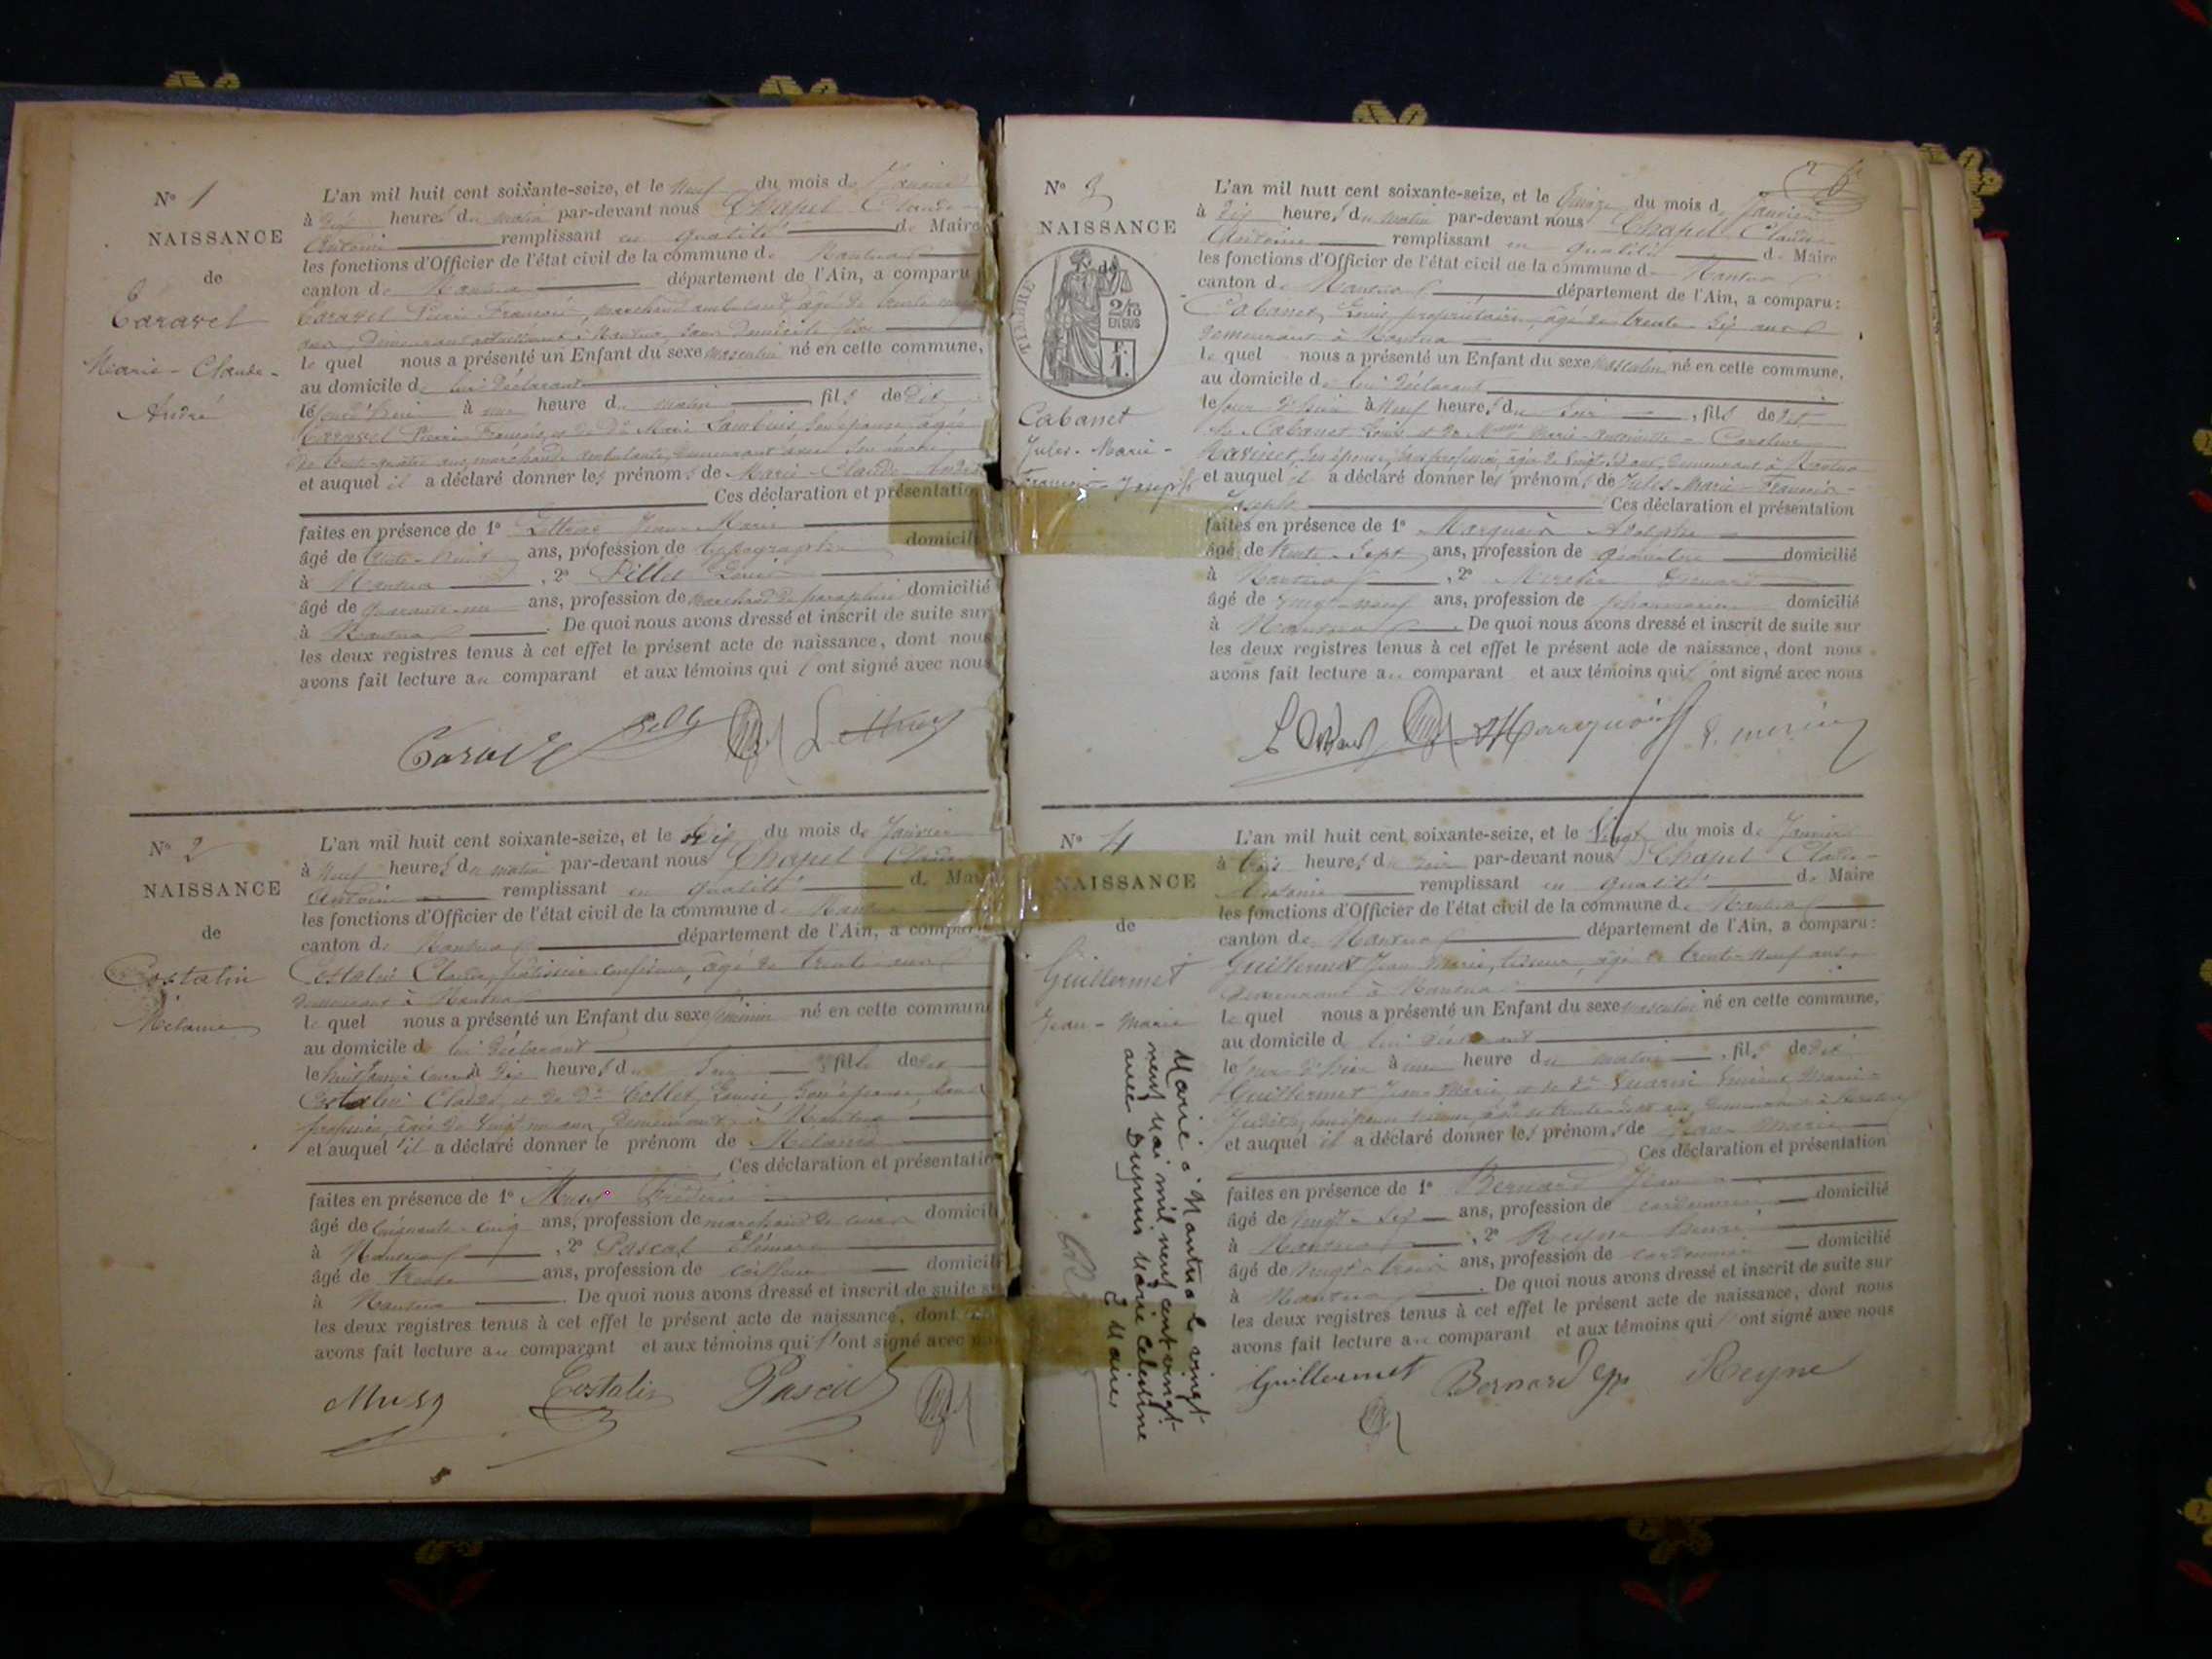 N° 1
NAISSANCE
de
Caravel
Marie - Claude -
André
L'an mil huit cent soixante-seize, et le Neuf du mois de Janvier
à dix heures du matin par-devant nous Chapel Claude
Antoine remplissant en qualité de Maire
les fonctions d'Officier de l'état civil de la commune de Nantua
canton de Nantua département de l'Ain, a comparu
Caravel Pierre François, marchand ambulant, âgé de trente
ans, demeurant actuellement à Nantua, sans domicile fixe
le quel nous a présenté un Enfant du sexe masculin né en cette commune,
au domicile de lui déclarant
le jour d'hier à une heure du matin, fils de dit
Caravel Pierre François, et de De Marie son épouse, âgée
de trente-quatre ans, marchande ambulante, demeurant avec son mari
et auquel il a déclaré donner les prénoms de Marie - Claude - André
Ces déclaration et présentation
faites en présence de 1° Jean Marie
âgé de trente-huit ans, profession de typographe domicilié
à Nantua, 2° Pillet Louis
âgé de quarante-un ans, profession de marchand de parapluies domicilié
à Nantua. De quoi nous avons dressé et inscrit de suite sur
les deux registres tenus à cet effet le présent acte de naissance, dont nous
avons fait lecture au comparant et aux témoins qui l'ont signé avec nous
N° 2
NAISSANCE
de
Costalin
Mélanie
L'an mil huit cent soixante-seize, et le dix du mois de Janvier
à Neuf heures du matin par-devant nous Chapel Claude
Antoine remplissant en qualité de Maire
les fonctions d'Officier de l'état civil de la commune de Nantua
canton de Nantua département de l'Ain, a comparu
Costalin Claude, pâtissier confiseur, âgé de trente ans
demeurant à Nantua
le quel nous a présenté un Enfant du sexe féminin né en cette commune
au domicile de lui déclarant
le huit Janvier courant à dix heures du soir fille de dit
Costalin Claude, et de De Collet, Louise, son épouse, sans
profession, âgée de vingt un ans, demeurant à Nantua
et auquel il a déclaré donner le prénom de Mélanie
Ces déclaration et présentation
faites en présence de 1° Musy Frédéric
âgé de cinquante-cinq ans, profession de marchand de cuirs domicilié
à Nantua, 2° Pascal
âgé de trente ans, profession de coiffeur domicilié
à Nantua. De quoi nous avons dressé et inscrit de suite sur
les deux registres tenus à cet effet le présent acte de naissance, dont nous
avons fait lecture au comparant et aux témoins qui l'ont signé avec nous
Musy Costalin Pascal
N° 3
NAISSANCE
de
TIMBRE
2/10
EN SUS
Cabanet
Jules - Marie -
François - Joseph
L'an mil huit cent soixante-seize, et le Quinze du mois de Janvier
à dix heures du matin par-devant nous Chapel Claude
Antoine remplissant en qualité de Maire
les fonctions d'Officier de l'état civil de la commune de Nantua
canton de Nantua département de l'Ain, a comparu:
Cabanet, Louis, propriétaire, âgé de trente-six ans
demeurant à Nantua
le quel nous a présenté un Enfant du sexe masculin né en cette commune,
au domicile de lui déclarant
le jour d'hier à Neuf heures du soir, fils de dit
Cabanet Louis et de Marie - Antoinette - Caroline
son épouse, sans profession, âgée de vingt ans, demeurant à Nantua
et auquel il a déclaré donner les prénoms de Jules - Marie - François -
Joseph Ces déclaration et présentation
faites en présence de 1° Marquois Adolphe
âgé de trente-sept ans, profession de géomètre domicilié
à Nantua, 2° Mercier
âgé de vingt-neuf ans, profession de pharmacien domicilié
à Nantua. De quoi nous avons dressé et inscrit de suite sur
les deux registres tenus à cet effet le présent acte de naissance, dont nous
avons fait lecture au comparant et aux témoins qui l'ont signé avec nous
N° 4
NAISSANCE
de
Guillermet
Jean - Marie
Marié à Nantua le vingt
neuf Mai mil neuf cent vingt
avec Dumur Marie Célestine
L Maire
L'an mil huit cent soixante-seize, et le Vingt du mois de Janvier
à trois heures du soir par-devant nous Chapel Claude -
Antoine remplissant en qualité de Maire
les fonctions d'Officier de l'état civil de la commune de Nantua
canton de Nantua département de l'Ain, a comparu:
Guillermet Jean Marie, tisseur, âgé de trente-neuf ans
demeurant à Nantua
le quel nous a présenté un Enfant du sexe masculin né en cette commune,
au domicile de lui déclarant
le jour d'hier à une heure du matin, fils de dit
Guillermet Jean Marie, et de De Marie -
son épouse demeurant à Nantua
et auquel il a déclaré donner les prénoms de Jean Marie
Ces déclaration et présentation
faites en présence de 1° Bernard Jean
âgé de vingt-six ans, profession de cordonnier domicilié
à Nantua, 2° Reyne
âgé de vingt-trois ans, profession de cordonnier domicilié
à Nantua. De quoi nous avons dressé et inscrit de suite sur
les deux registres tenus à cet effet le présent acte de naissance, dont nous
avons fait lecture au comparant et aux témoins qui l'ont signé avec nous
Guillermet Bernard Reyne